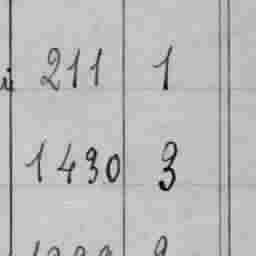 211 1
1430 3